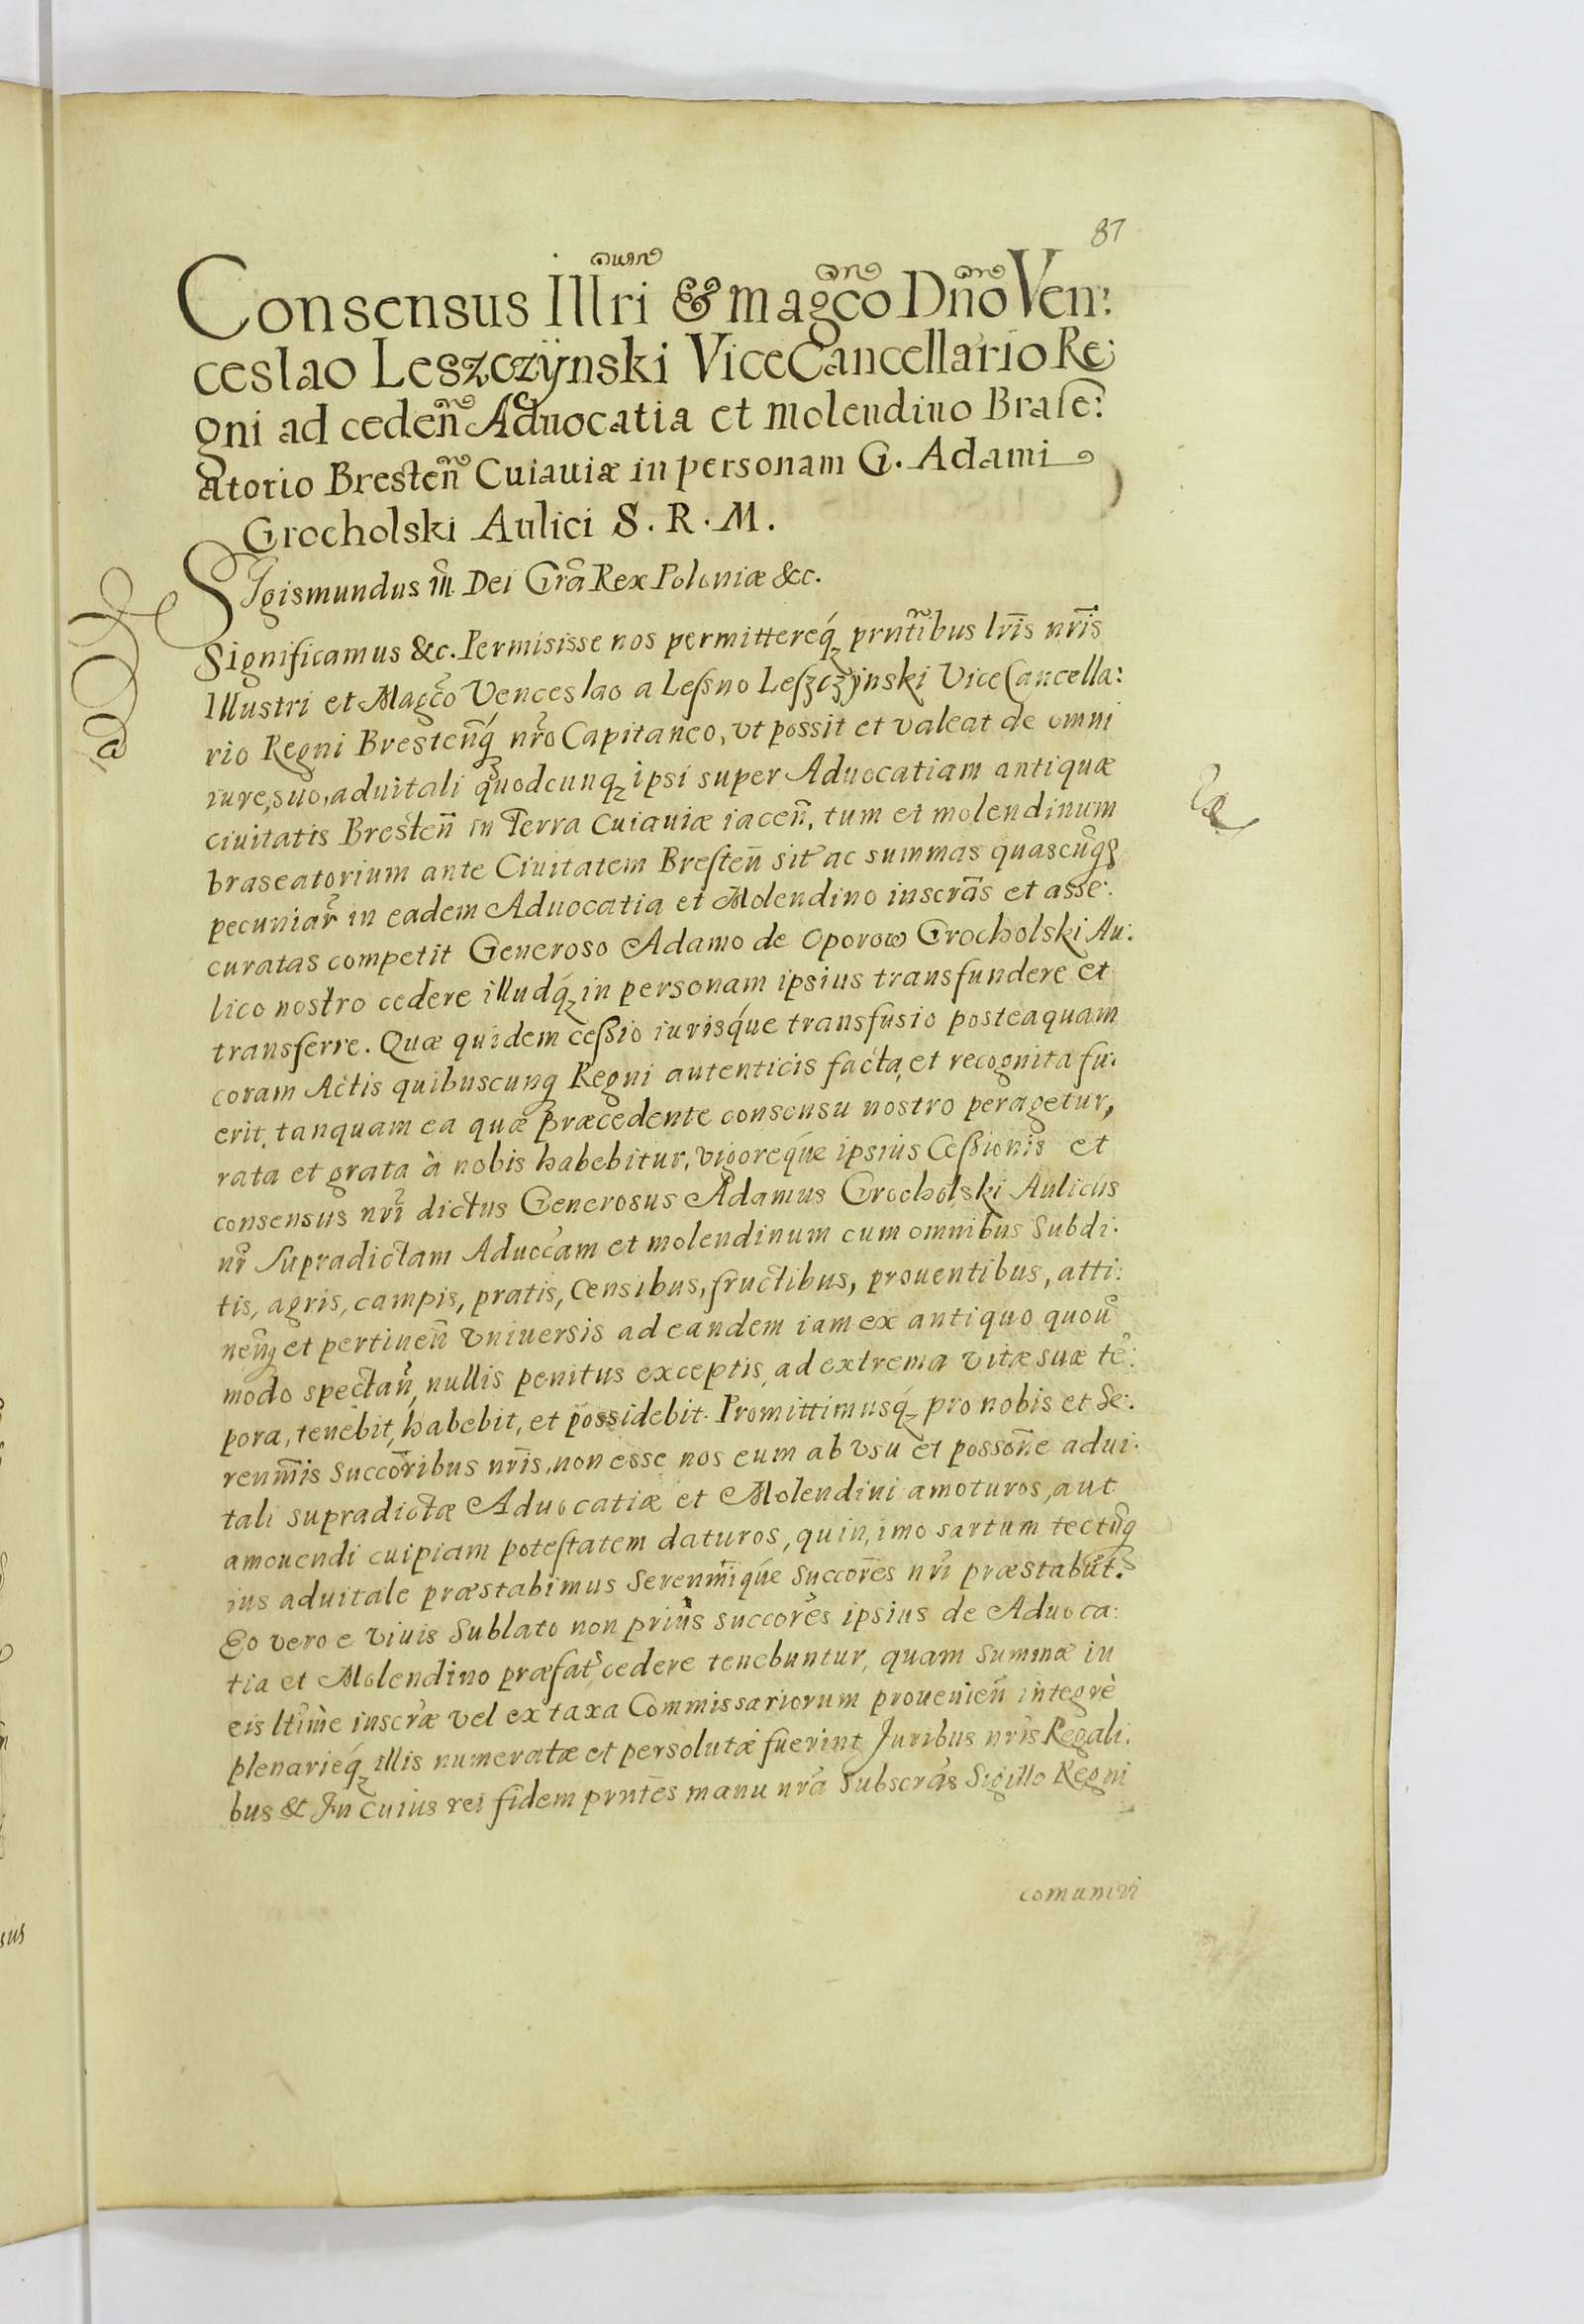 87
Consensus Illri & magco Dno Ven:
ceslao Leszczÿnski ViceCancellario Re:
gni ad ceden̄ Aduocatia et molendino Brase:
atorio Bresten̄ Cuiauiæ in personam G. Adami
Grocholski Aulici S. R. M.
SIgismundus III. Dei Grã Rex Poloniæ &c.
Significamus &c. Permisisse nos permittereq́ꝫ prntibus lris nris
Illustri et Magco Venceslao a Lesßno Leszczÿnski ViceCancella:
rio Regni Brestenq́ꝫ nro Capitaneo, vt possit et valeat de omni
iure, suo, aduitali quodcunqꝫ ipsi super Aduocatiam antiquæ
ciuitatis Bresten̄ in Terra Cuiauiæ iacen̄, tum et molendinum
braseatorium ante Ciuitatem Bresten̄ sit̃ ac summas quascũqꝫ
pecuniar̃ in eadem Aduocatia et Molendino inscrãs et asse:
curatas competit Generoso Adamo de Oporow Grocholski Au:
lico nostro cedere illudq́ꝫ in personam ipsius transfundere et
transferre. Quæ quidem ceßio iurisq́ue transfusio posteaquam
coram Actis quibuscunqꝫ Regni autenticis facta, et recognita fu:
erit, tanquam ea quæ præcedente consensu nostro peragetur,
rata et grata à nobis habebitur, vigoreq́ue ipsius Ceßionis et
consensus nri dictus Generosus Adamus Grocholski Aulicus
nr̃ supradictam Aduocãm et molendinum cum omnibus subdi:
tis, agris, campis, pratis, censibus, fructibus, prouentibus, atti:
nenqꝫ et pertinen̄ vniuersis ad eandem iam ex antiquo quouĩs
modo spectan̄, nullis penitus exceptis, ad extrema vitæ suæ tẽ:
pora, tenebit, habebit, et possidebit. Promittimusq́ꝫ pro nobis et Se:
renm̃is succoribus nris, non esse nos eum ab vsu et possone adui:
tali supradictæ Aduocatiæ et Molendini amoturos, aut
amouendi cuipiam potestatem daturos, quin, imo sartum tectũqꝫ
ius aduitale præstabimus Serenmiq́ue succores nri præstabũt.
Eo vero e viuis sublato non prius succores ipsius de Aduoca:
tia et Molendino præfat̃ cedere tenebuntur, quam summæ in
eis ltime inscræ vel ex taxa Commissariorum prouenien̄ integrè
plenarieq́ꝫ illis numeratæ et persolutæ fuerint Juribus nris Regali:
bus & In cuius rei fidem prntes manu nrã subscrãs Sigillo Regni
comuniri